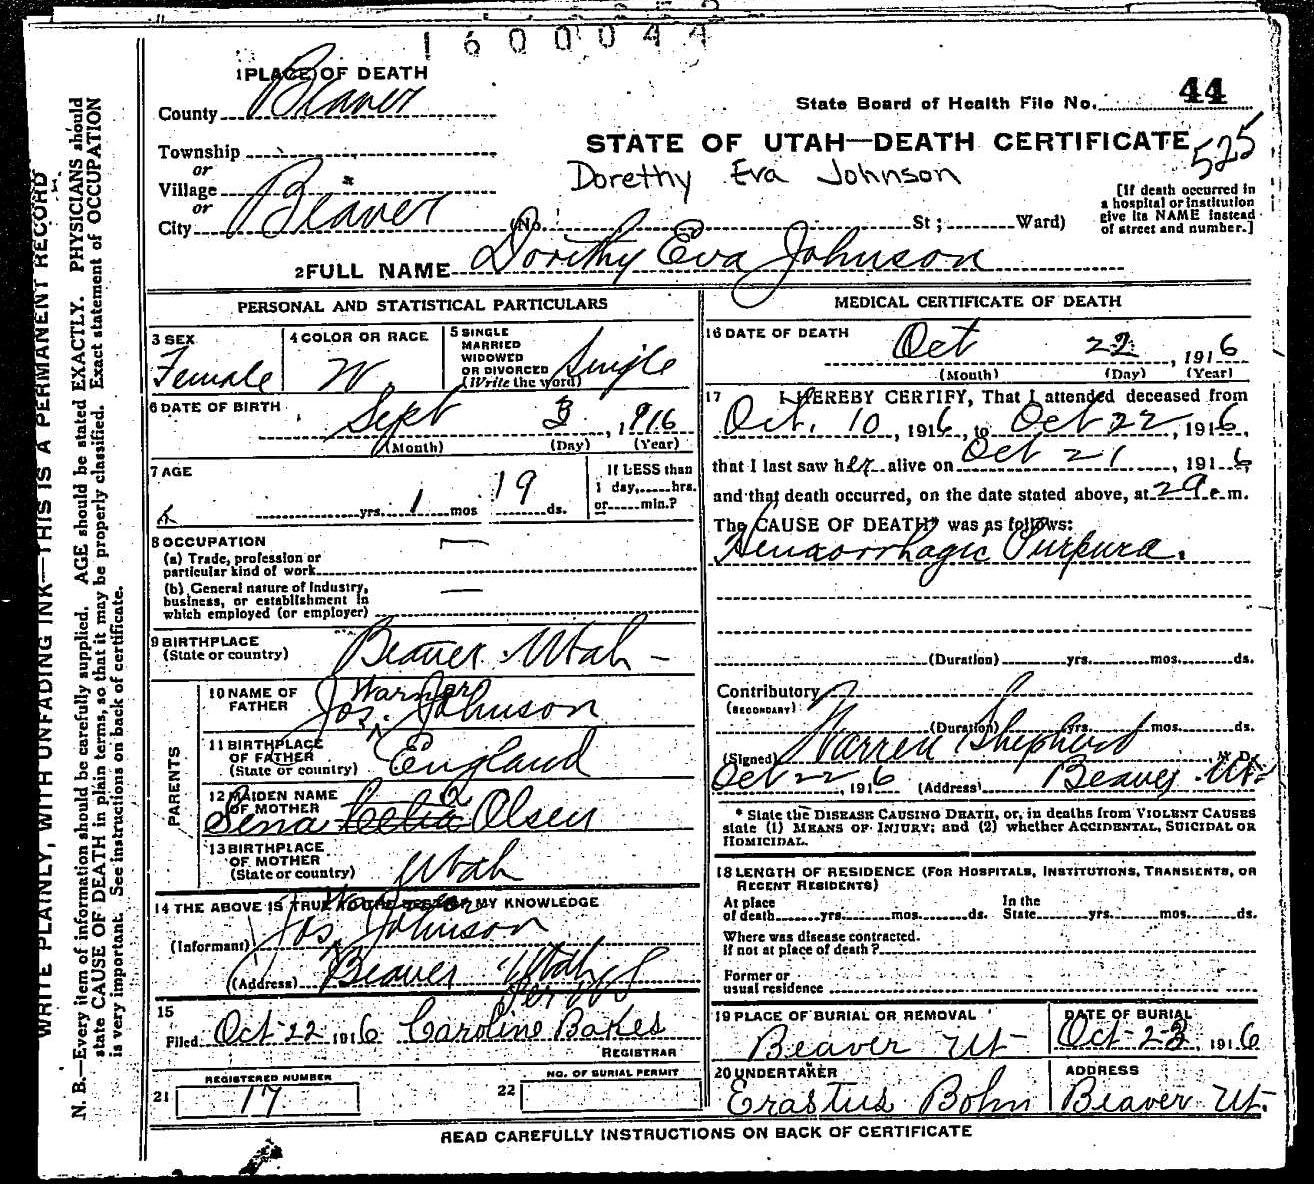 1600044
1 PLACE OF DEATH
County Beaver
State Board of Health File No. 44
STATE OF UTAH—DEATH CERTIFICATE 525
Township
or
Village
or
City Beaver
Dorethy Eva Johnson
(No. St; Ward)
[If death occurred in
a hospital or institution
give its NAME instead
of street and number.]
2 FULL NAME Dorithy Eva Johnson
PERSONAL AND STATISTICAL PARTICULARS
3 SEX
Female
4 COLOR OR RACE
W
5 SINGLE
MARRIED
WIDOWED
OR DIVORCED
(Write the word)
Single
6 DATE OF BIRTH
Sept 3, 1916
(Month) (Day) (Year)
7 AGE
yrs. 1 mos 19 ds.
If LESS than
1 day, hrs.
or min.?
8 OCCUPATION
(a) Trade, profession or
particular kind of work
(b) General nature of Industry,
business, or establishment in
which employed (or employer)
9 BIRTHPLACE
(State or country)
Beaver Utah
PARENTS
10 NAME OF
FATHER
Warner
Jos. Johnson
11 BIRTHPLACE
OF FATHER
(State or country)
England
12 MAIDEN NAME
OF MOTHER
Sena Celia Olsen
13 BIRTHPLACE
OF MOTHER
(State or country)
Utah
14 THE ABOVE IS TRUE TO THE BEST OF MY KNOWLEDGE
(Informant) Jos. Johnson
(Address) Beaver Utah
15
Filed Oct 22 1916 Caroline Bakes
REGISTRAR
21
REGISTERED NUMBER
17
22
NO. OF BURIAL PERMIT
MEDICAL CERTIFICATE OF DEATH
16 DATE OF DEATH
Oct 22, 1916
(Month) (Day) (Year)
17 I HEREBY CERTIFY, That I attended deceased from
Oct. 10, 1916, to Oct 22, 1916,
that I last saw her alive on Oct 21, 1916,
and that death occurred, on the date stated above, at m.
The CAUSE OF DEATH* was as follows:
Hemorrhagic Purpura.
(Duration) yrs. mos. ds.
Contributory
(SECONDARY)
(Duration) yrs. mos. ds.
(Signed) Warren Shepherd M. D.
Oct 22, 1916 (Address) Beaver Ut
* State the DISEASE CAUSING DEATH, or, in deaths from VIOLENT CAUSES
state (1) MEANS OF INJURY; and (2) whether ACCIDENTAL, SUICIDAL OR
HOMICIDAL.
18 LENGTH OF RESIDENCE (FOR HOSPITALS, INSTITUTIONS, TRANSIENTS, OR
RECENT RESIDENTS)
At place
of death yrs. mos. ds.
In the
State yrs. mos. ds.
Where was disease contracted.
If not at place of death?
Former or
usual residence
19 PLACE OF BURIAL OR REMOVAL
Beaver Ut
DATE OF BURIAL
Oct 23, 1916
20 UNDERTAKER
Erastus Bohn
ADDRESS
Beaver Ut.
READ CAREFULLY INSTRUCTIONS ON BACK OF CERTIFICATE
WRITE PLAINLY, WITH UNFADING INK—THIS IS A PERMANENT RECORD
N. B.—Every item of information should be carefully supplied. AGE should be stated EXACTLY. PHYSICIANS should
state CAUSE OF DEATH in plain terms, so that it may be properly classified. Exact statement of OCCUPATION
is very important. See instructions on back of certificate.